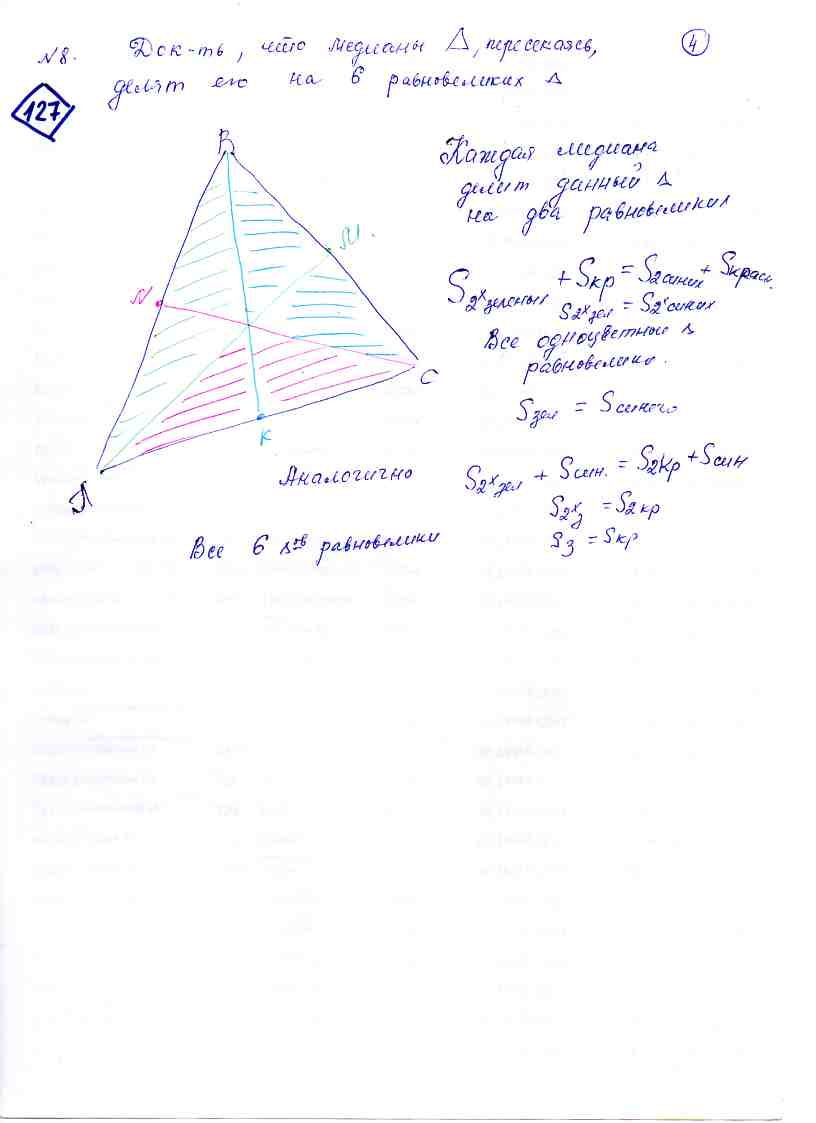 №8. Док-ть, что медианы Δ, пересекаясь, 4
делят его на 6 равновеликих Δ
127
B
Каждая медиана
делит данный Δ
на два равновеликих
M.
N
S2х зеленых + Sкр = S2 синих + Sкрасн.
S2х зел = S2х синих
Все одноцветные Δ
равновелики.
C
Sзел = Sсинего
K
A
Аналогично
S2х зел + Sсин. = S2кр + Sсин
S2х з = S2кр
Sз = Sкр
Все 6 Δов равновелики